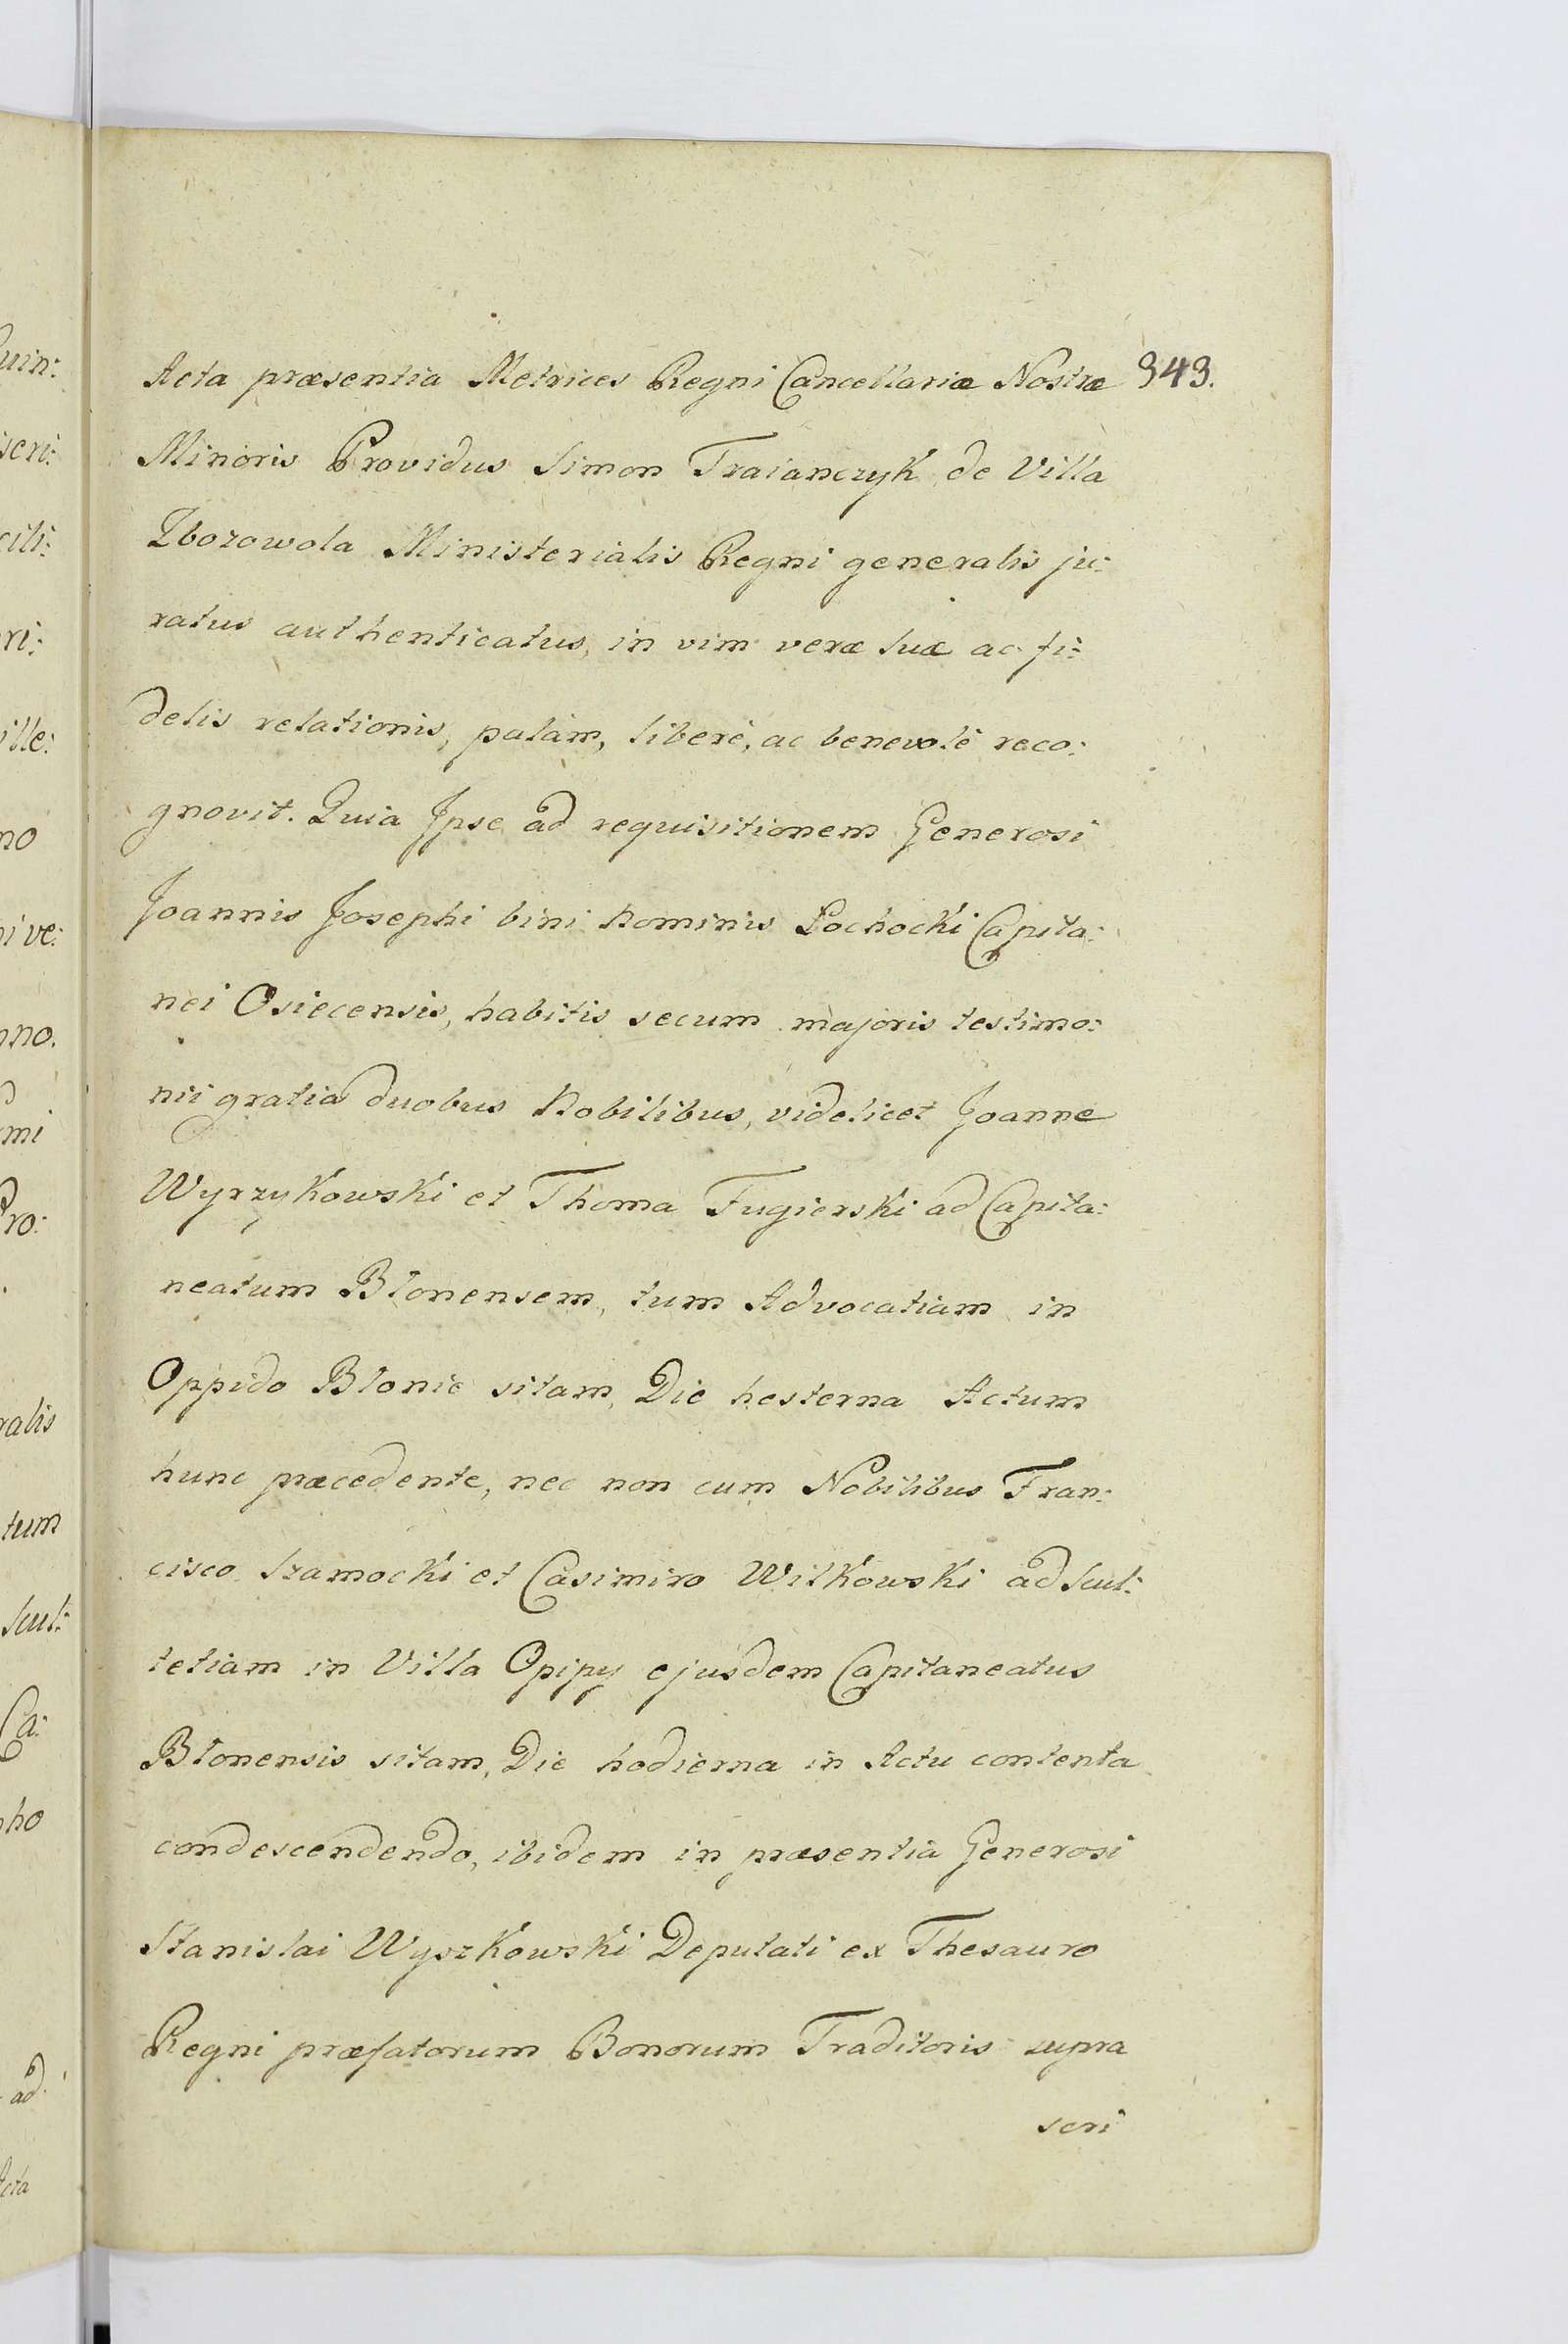 Acta præsentia Metrices Regni Cancellariæ Nostræ 343.
Minoris Providus Simon Traianczyk de Villa
Zborowola Ministerialis Regni generalis ju:
ratus authenticatus, in vim veræ suæ ac fi:
delis relationis, palàm, liberè, ac benevolè reco:
gnovit. Quia Ipse ad requisitionem Generosi
Joannis Josephi bini Nominis Lochocki Capita:
nei Osiecensis, habitis secum majoris testimo:
nii gratia duobus Nobilibus, videlicet Joanne
Wyrzykowski et Thoma Fugierski ad Capita:
neatum Blonensem, tum Advocatiam in
Oppido Blonie sitam, Die hesterna Actum
hunc præcedente, nec non cum Nobilibus Fran:
cisco Szamocki et Casimiro Wilkowski ad Scul:
tetiam in Villa Opipy ejusdem Capitaneatus
Blonensis sitam, Die hodierna in Actu contenta
condescendendo, ibidem in præsentia Generosi
Stanislai Wyszkowski Deputati ex Thesauro
Regni præfatorum Bonorum Traditoris supra
scri